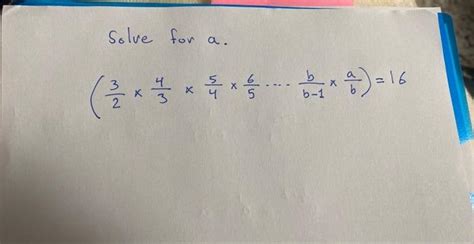 Solve for a.
(3/2 × 4/3 × 5/4 × 6/5 .... b/b-1 × a/b) = 16